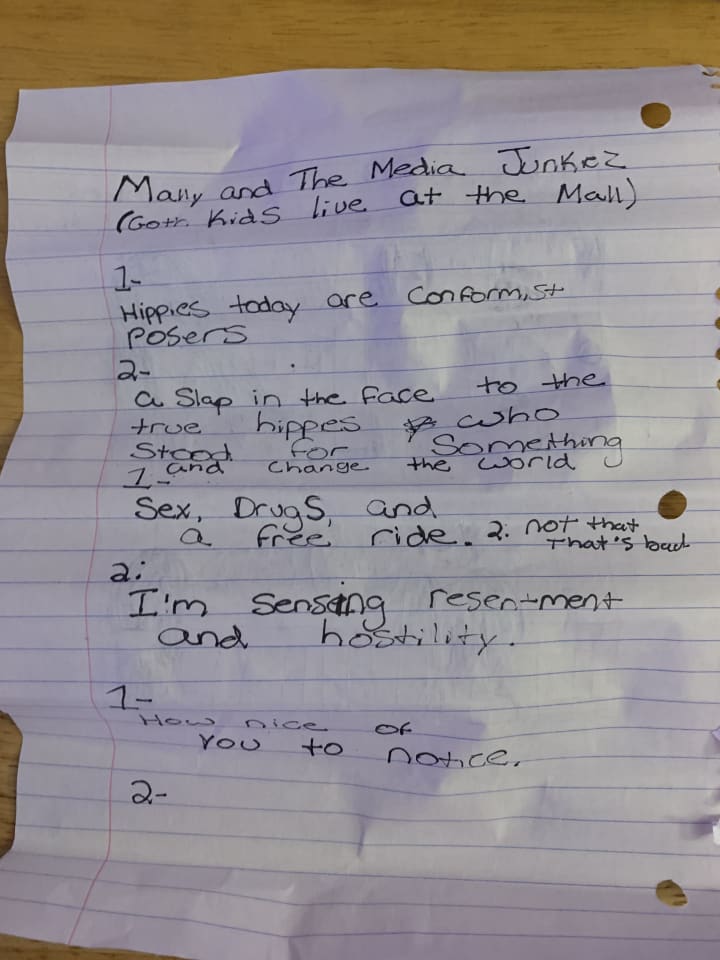 Mally and The Media Junkiez
(Goth Kids live at the Mall)
1-
Hippies today are Conformist
Posers
2-
a Slap in the Face to the
true hippes who
Stood for Something
and Change the World
1-
Sex, Drugs, and
a free ride. 2. not that
That's bad
2:
I'm Sensing resentment
and hostility.
1-
How nice of
You to notice.
2-